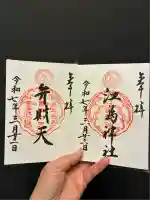 奉拝
江島神社
令和七年三月廿二日
奉拝
弁財天
令和七年三月廿二日